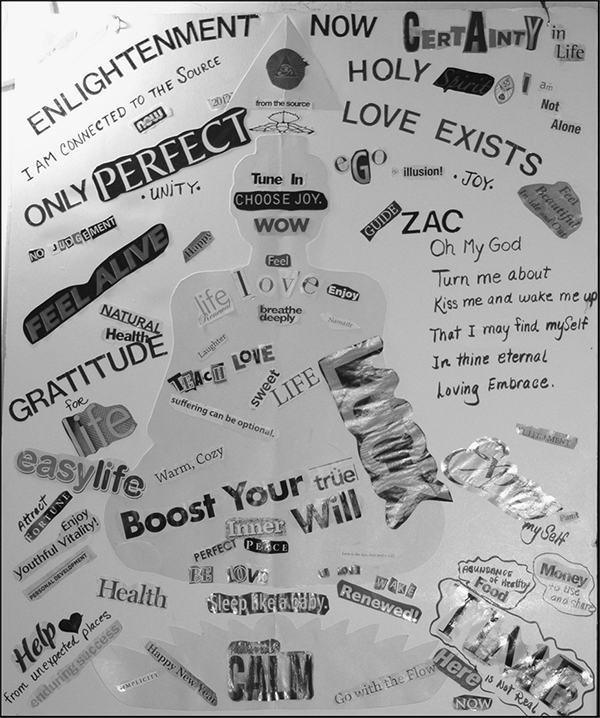 ENLIGHTENMENT NOW CERTAINTY in Life
I AM CONNECTED TO THE SOURCE
now
2012
from the source
HOLY Spirit
I am Not Alone
LOVE EXISTS
ONLY PERFECT
• UNITY.
eGo is illusion! • JOY.
Feel Beautiful Inside and Out
Tune In
CHOOSE JOY.
WOW
GUIDE ZAC
Oh My God
Turn me about
Kiss me and wake me up
That I may find mySelf
In thine eternal
Loving Embrace.
NO JUDGEMENT
FEEL ALIVE
Happy
Feel
love
life
Renewal
Enjoy
breathe deeply
Namaste
NATURAL Health
Laughter
GRATITUDE
for life
TEACH LOVE
sweet LIFE
suffering can be optional.
easylife
Warm, Cozy
Attract FORTUNE
Enjoy Youthful Vitality!
PERSONAL DEVELOPMENT
Boost Your true Will
Inner
PERFECT PEACE
mySelf
BE LOVE
WAKE
Renewed!
Health
Sleep like a baby.
Help
from unexpected places
enduring success
SIMPLICITY
Happy New Year
CALM
Go with the Flow
ABUNDANCE of Healthy Food
Money to use and share
TIME
is Not Real
Here
NOW